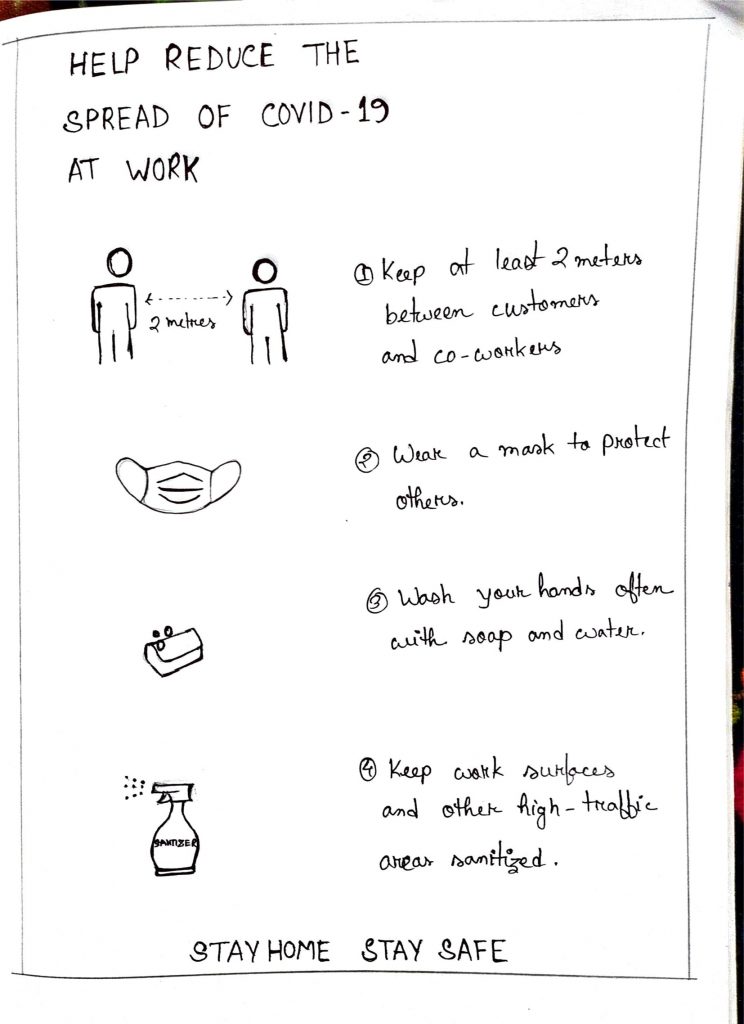 HELP REDUCE THE
SPREAD OF COVID-19
AT WORK
2 metres
① Keep at least 2 meters
between customers
and co-workers
② Wear a mask to protect
others.
③ Wash your hands often
with soap and water.
SANITIZER
④ Keep work surfaces
and other high-traffic
areas sanitized.
STAY HOME STAY SAFE